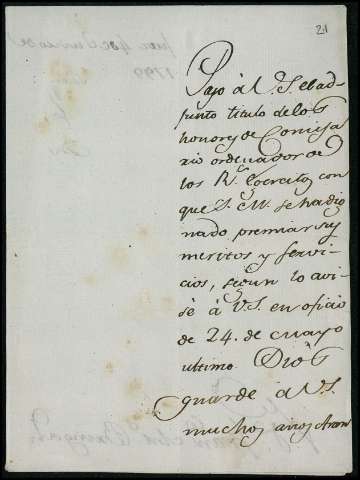 21
Paso à V.S. el ad-
junto titulo de los
honores de Comisa
rio ordenador de
los R.s Exercitos con
que S. M. se ha dig
nado premiar sus
meritos y servi-
cios, segun lo avi-
sé à V.S. en oficio
de 24. de mayo
ultimo Dios
guarde a V.S.
muchos años Aran